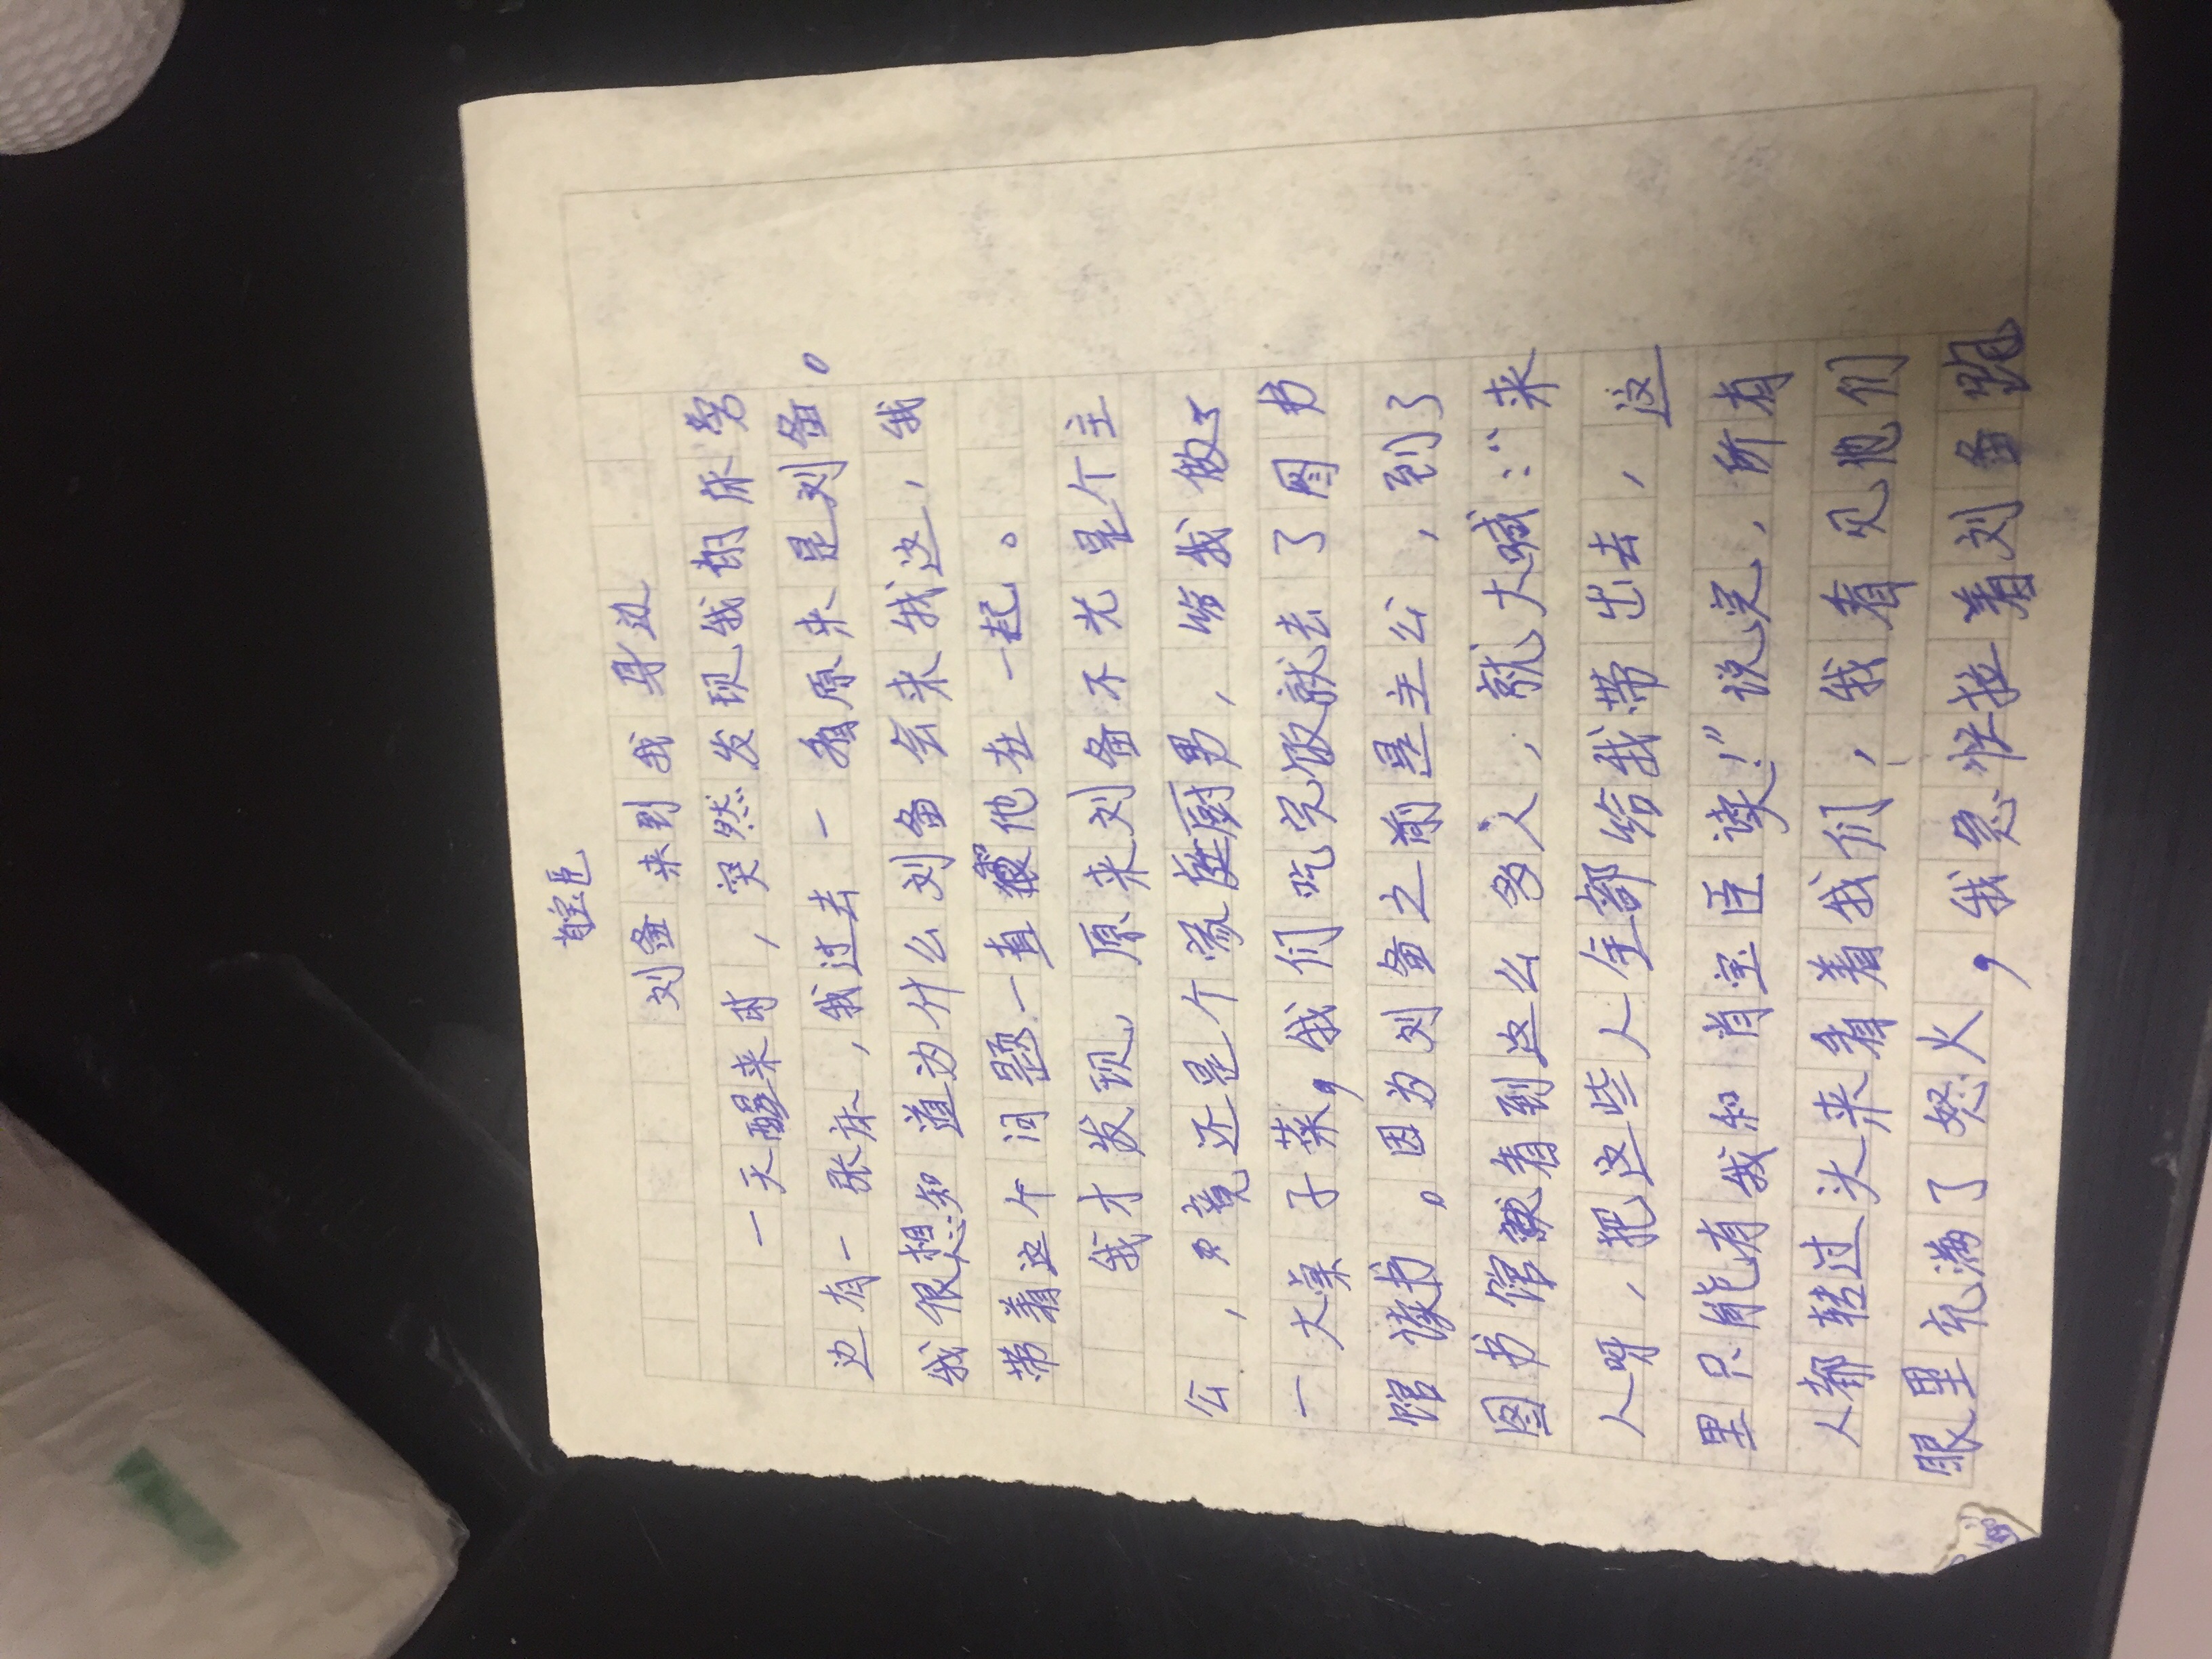 肖宝臣
刘备来到我身边
一天醒来时，突然发现我的床旁
边有一张床，我过去一看原来是刘备。
我很想知道为什么刘备会来我这，我
带着这个问题一直跟他在一起。
我才发现原来刘备不光是个主
公，竟还是个家庭厨男，给我做了
一大桌子菜，我们吃完饭就去了图书
馆读书。因为刘备之前是主公，到了
图书馆就看到这么多人，就大喊：“来
人呀，把这些人全部给我带出去，这
里只能有我和肖宝臣读！”说完，所有
人都转过头来看着我们，我看见他们
眼里充满了怒火，我急忙拉着刘备跑